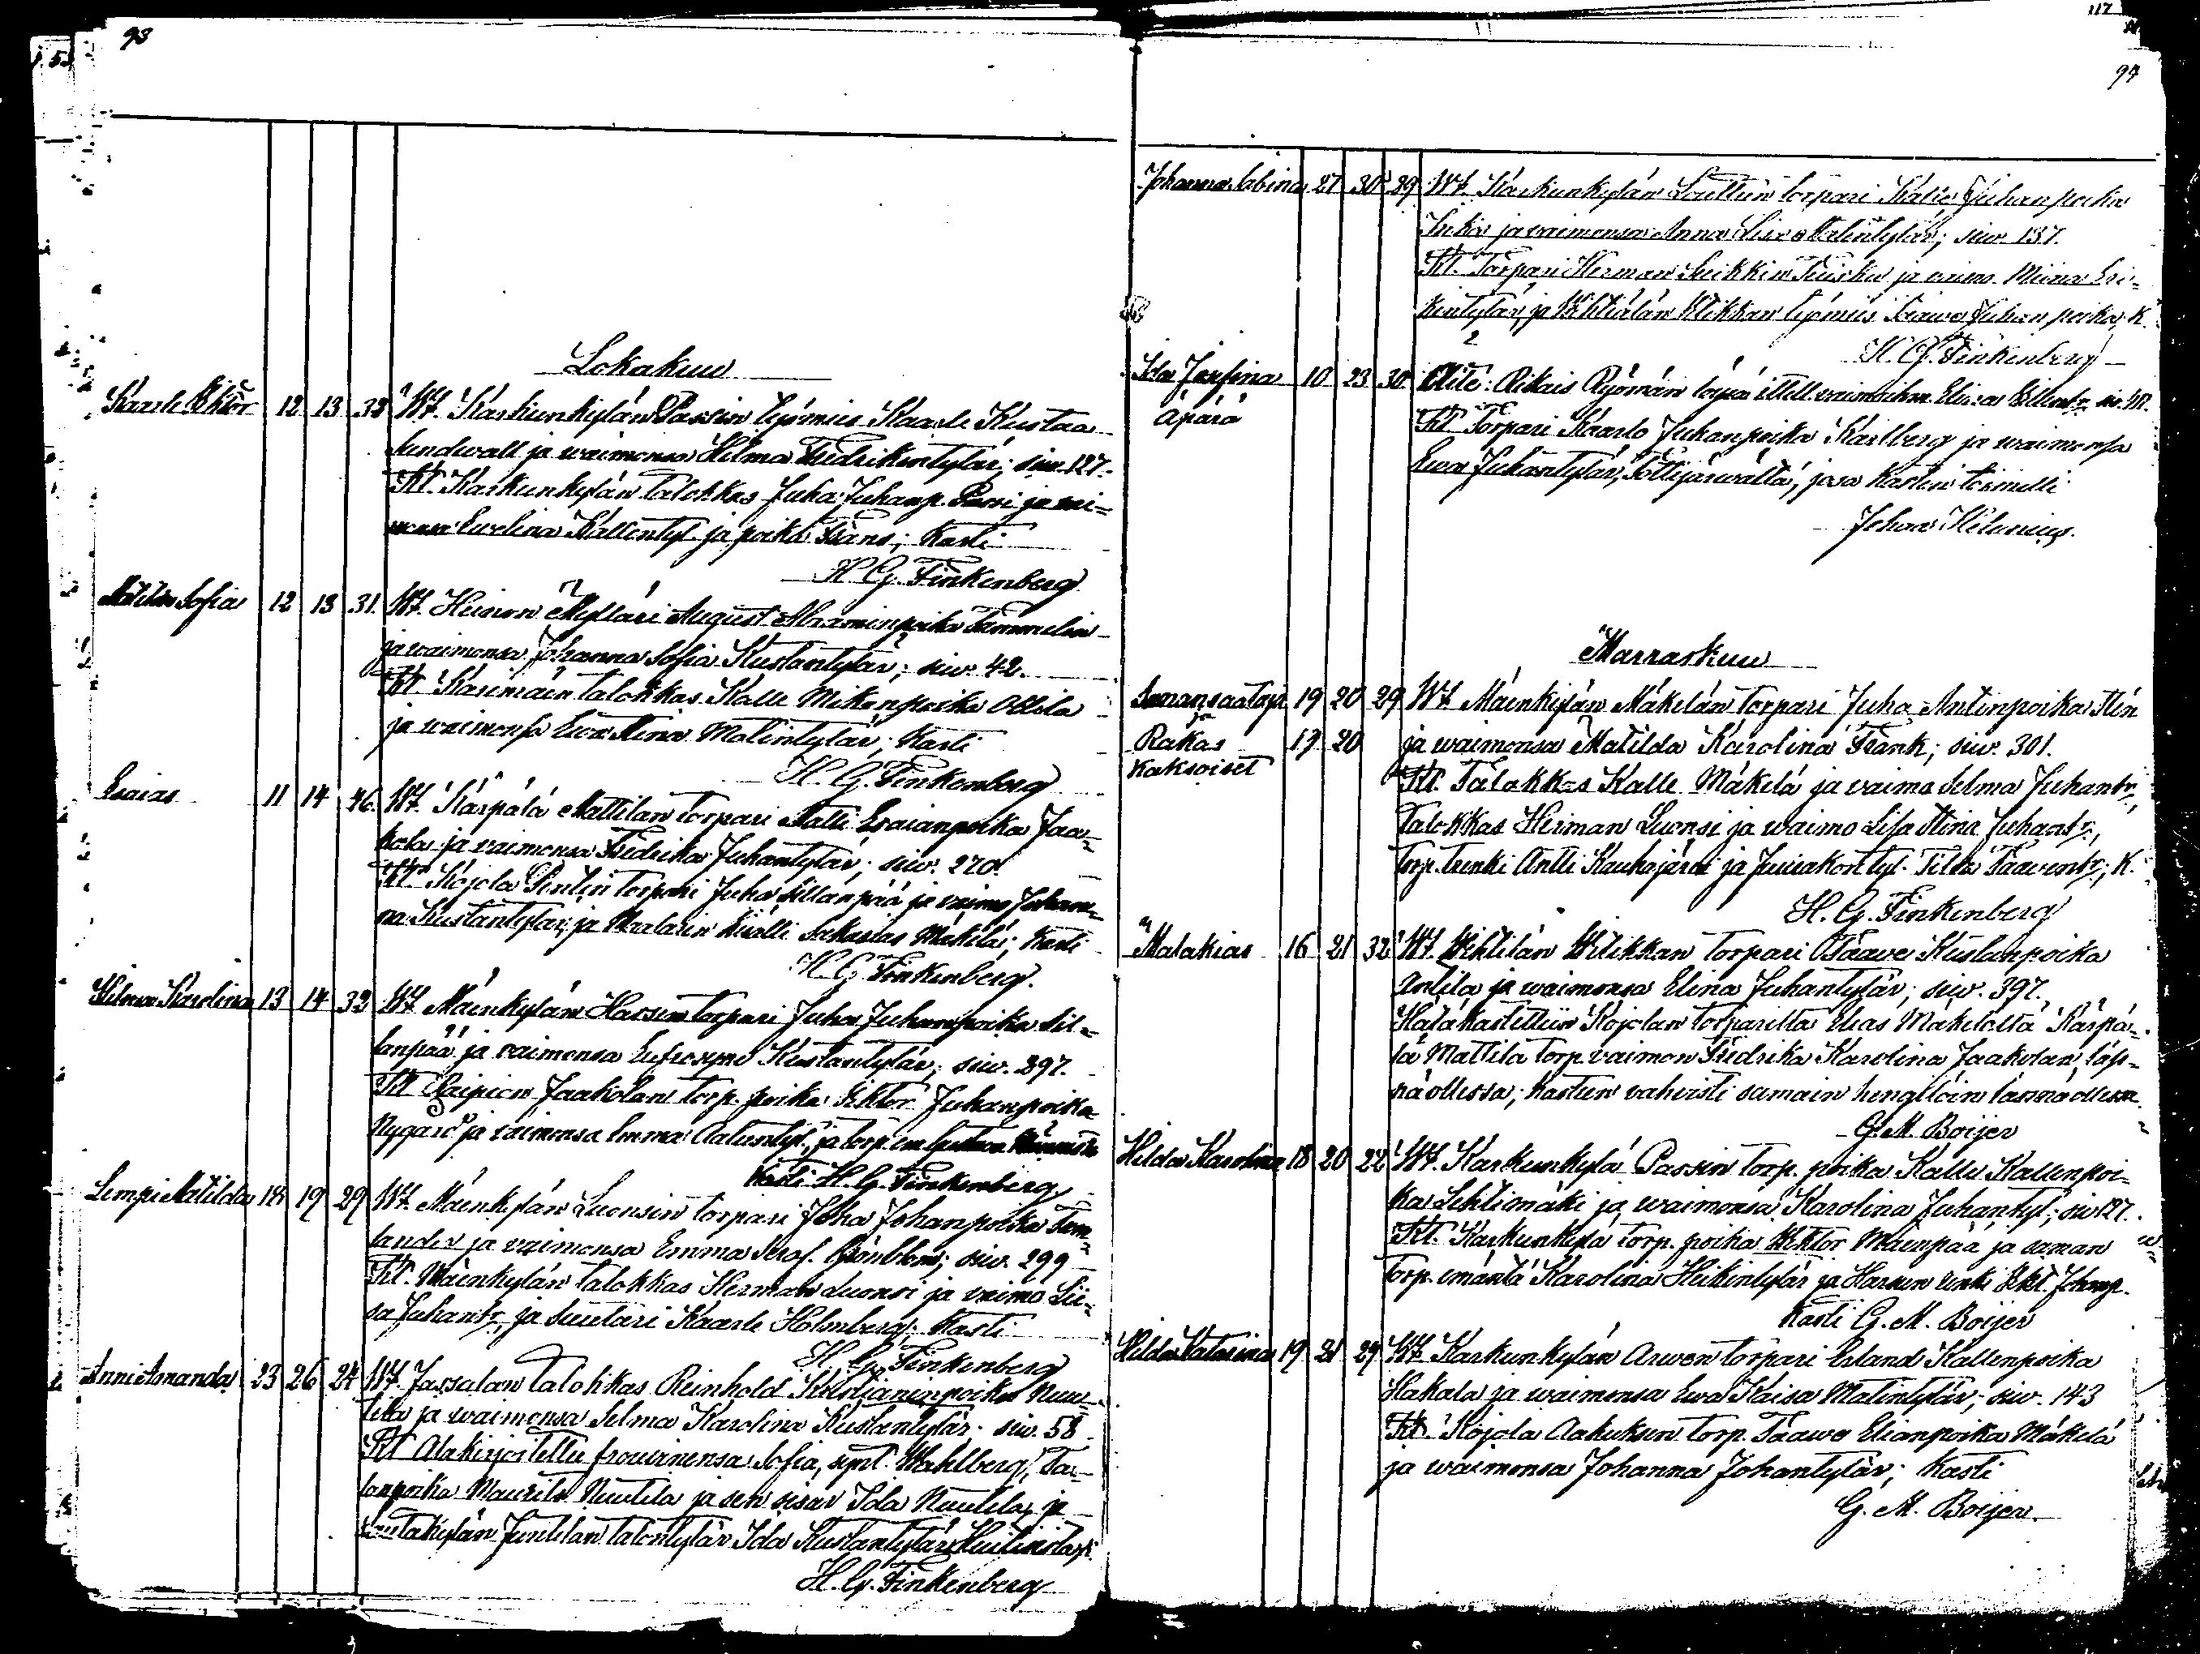 93
Lokakuu
Kaarle Viktor 12 13 32 Wf. Karkunkylän Passin työmies Kaarle Kustaa
Sundwall ja waimonsa Hilma Fredrikintytär; siw. 127.
Kt. Karkunkylän talokkas Juha Juhanp. Passi ja wai-
monsa Ewelina Kallentyt. ja poika Frans; Kasti
H. G. Finkenberg
Sofia 12 13 31. Wf. Heinon Mylläri August Tammelin
ja waimonsa Johanna Sofia Kustantytär; siw. 42.
Kt. Karimäen talokkas Kalle Mikonpoika Ollila
ja waimonsa Ewa Stina Matintytär; Kasti
H. G. Finkenberg
Esaias 11 14 46. Wf. Kärpälä Mattilan torpari Matti Esaianpoika Jaa-
kola ja waimonsa Fredrika Juhantytär; siw. 270.
Kt. Kojola torpari Juha Sillanpää ja waimo Johan-
na Kustantytär, ja Sakarias Mäkelä; Kasti
H. G. Finkenberg.
Hilma Karolina 13 14 32 Wf. Mäenkylän Hassin torpari Juha Juhanpoika Sil-
lanpää ja waimonsa Eufrosyne Kustantytär; siw. 297.
Kt. Jaakolan torp. poika Viktor Juhanpoika
Nygård ja waimonsa Emma ja torp. em.
Kasti H. G. Finkenberg
Lempi Matilda 18 19 29 Wf. Mäenkylän Luonsin torpari Juha Johanpoika
lander ja waimonsa Emma Seraf. Grönblom; siw. 299
Kt. Mäenkylän talokkas Herman Luonsi ja waimo Lii-
sa Juhantr, ja Suutari Kaarle Holmberg; Kasti
H. G. Finkenberg
Anni Amanda 23 26 24 Wf. Jassalan talokkas Reinhold Kristianinpoika Nuu-
tila ja waimonsa Selma Karolina Kustantytär; siw. 58
Kt. Allakirjoitettu frouvinensa Sofia, synt. Wahlberg, Ta-
lonpoika Maurits Nuutila ja sen sisar Ida Nuutila, ja
Juntilan talontytär Ida Kustantytär
H. G. Finkenberg
117
94
Johanna Sabina 27 30 39 Wf. Karkunkylän torpari Kalle Juhanpoika
ja waimonsa Anna Liisa Matintytär; siw. 137.
Kt. Torpari Herman ja waimo Miina Eri-
kintytär, ja työmies Taawe Juhanpoika, K.
H. G. Finkenberg
Ida Josefina 10 23 30 Äite: itsell. vaimoihm.
Äpärä Kt. Torpari Kaarlo Juhanpoika Karlberg ja waimonsa
Ewa Juhantytär, Tottijärweltä, josa Kasten toimitti
Johan Helenius.
Marraskuu
Sanansaattaja 19 20 29 Wf. Mäenkylän Mäkelän torpari Juha Antinpoika
Rakas 19 20 ja waimonsa Matilda Karolina Frank; siw. 301.
Kaksoiset Kt. Talokkas Kalle Mäkelä ja waimo Selma Juhantr,
Talokkas Herman Luonsi ja waimo Lisa Stina Juhantr,
torp. renki Antti Kauhajärvi ja piiakon tyt. Tilda Taaventr; K.
H. G. Finkenberg
Malakias 16 21 32 Wf. torpari Taawe Kustanpoika
Antila ja waimonsa Elina Juhantytär; siw. 397.
Hätäkastettiin Kojolan torparilta Elias Mäkelältä Kärpä-
lä Mattila torp. vaimon Fredrika Karolina Jaakolan läs-
nä ollessa; kasteen vahvisti samain hengillöin läsnä ollessa
G. M. Boijer
Hilda Karolina 18 20 22 Wf. Karkunkylä Passin torp. poika Kalle Kallenpoi-
ka Lehtiomäki ja waimonsa Karolina Juhantyt; siw. 127.
Kt. Karkunkylä torp. poika Viktor Mäenpää ja saman
torp. emäntä Karolina Heikintytär ja Hassun renki
Kasti G. M. Boijer
Hilda Katarina 19 21 29 Wf. Karkunkylän Arwen torpari Erland Kallenpoika
Hakala ja waimonsa Ewa Kaisa Matintytär; siw. 143
Kt. Kojola Aakuksen torp. Taawe Elianpoika Mäkelä
ja waimonsa Johanna Johantytär; Kasti
G. M. Boijer.